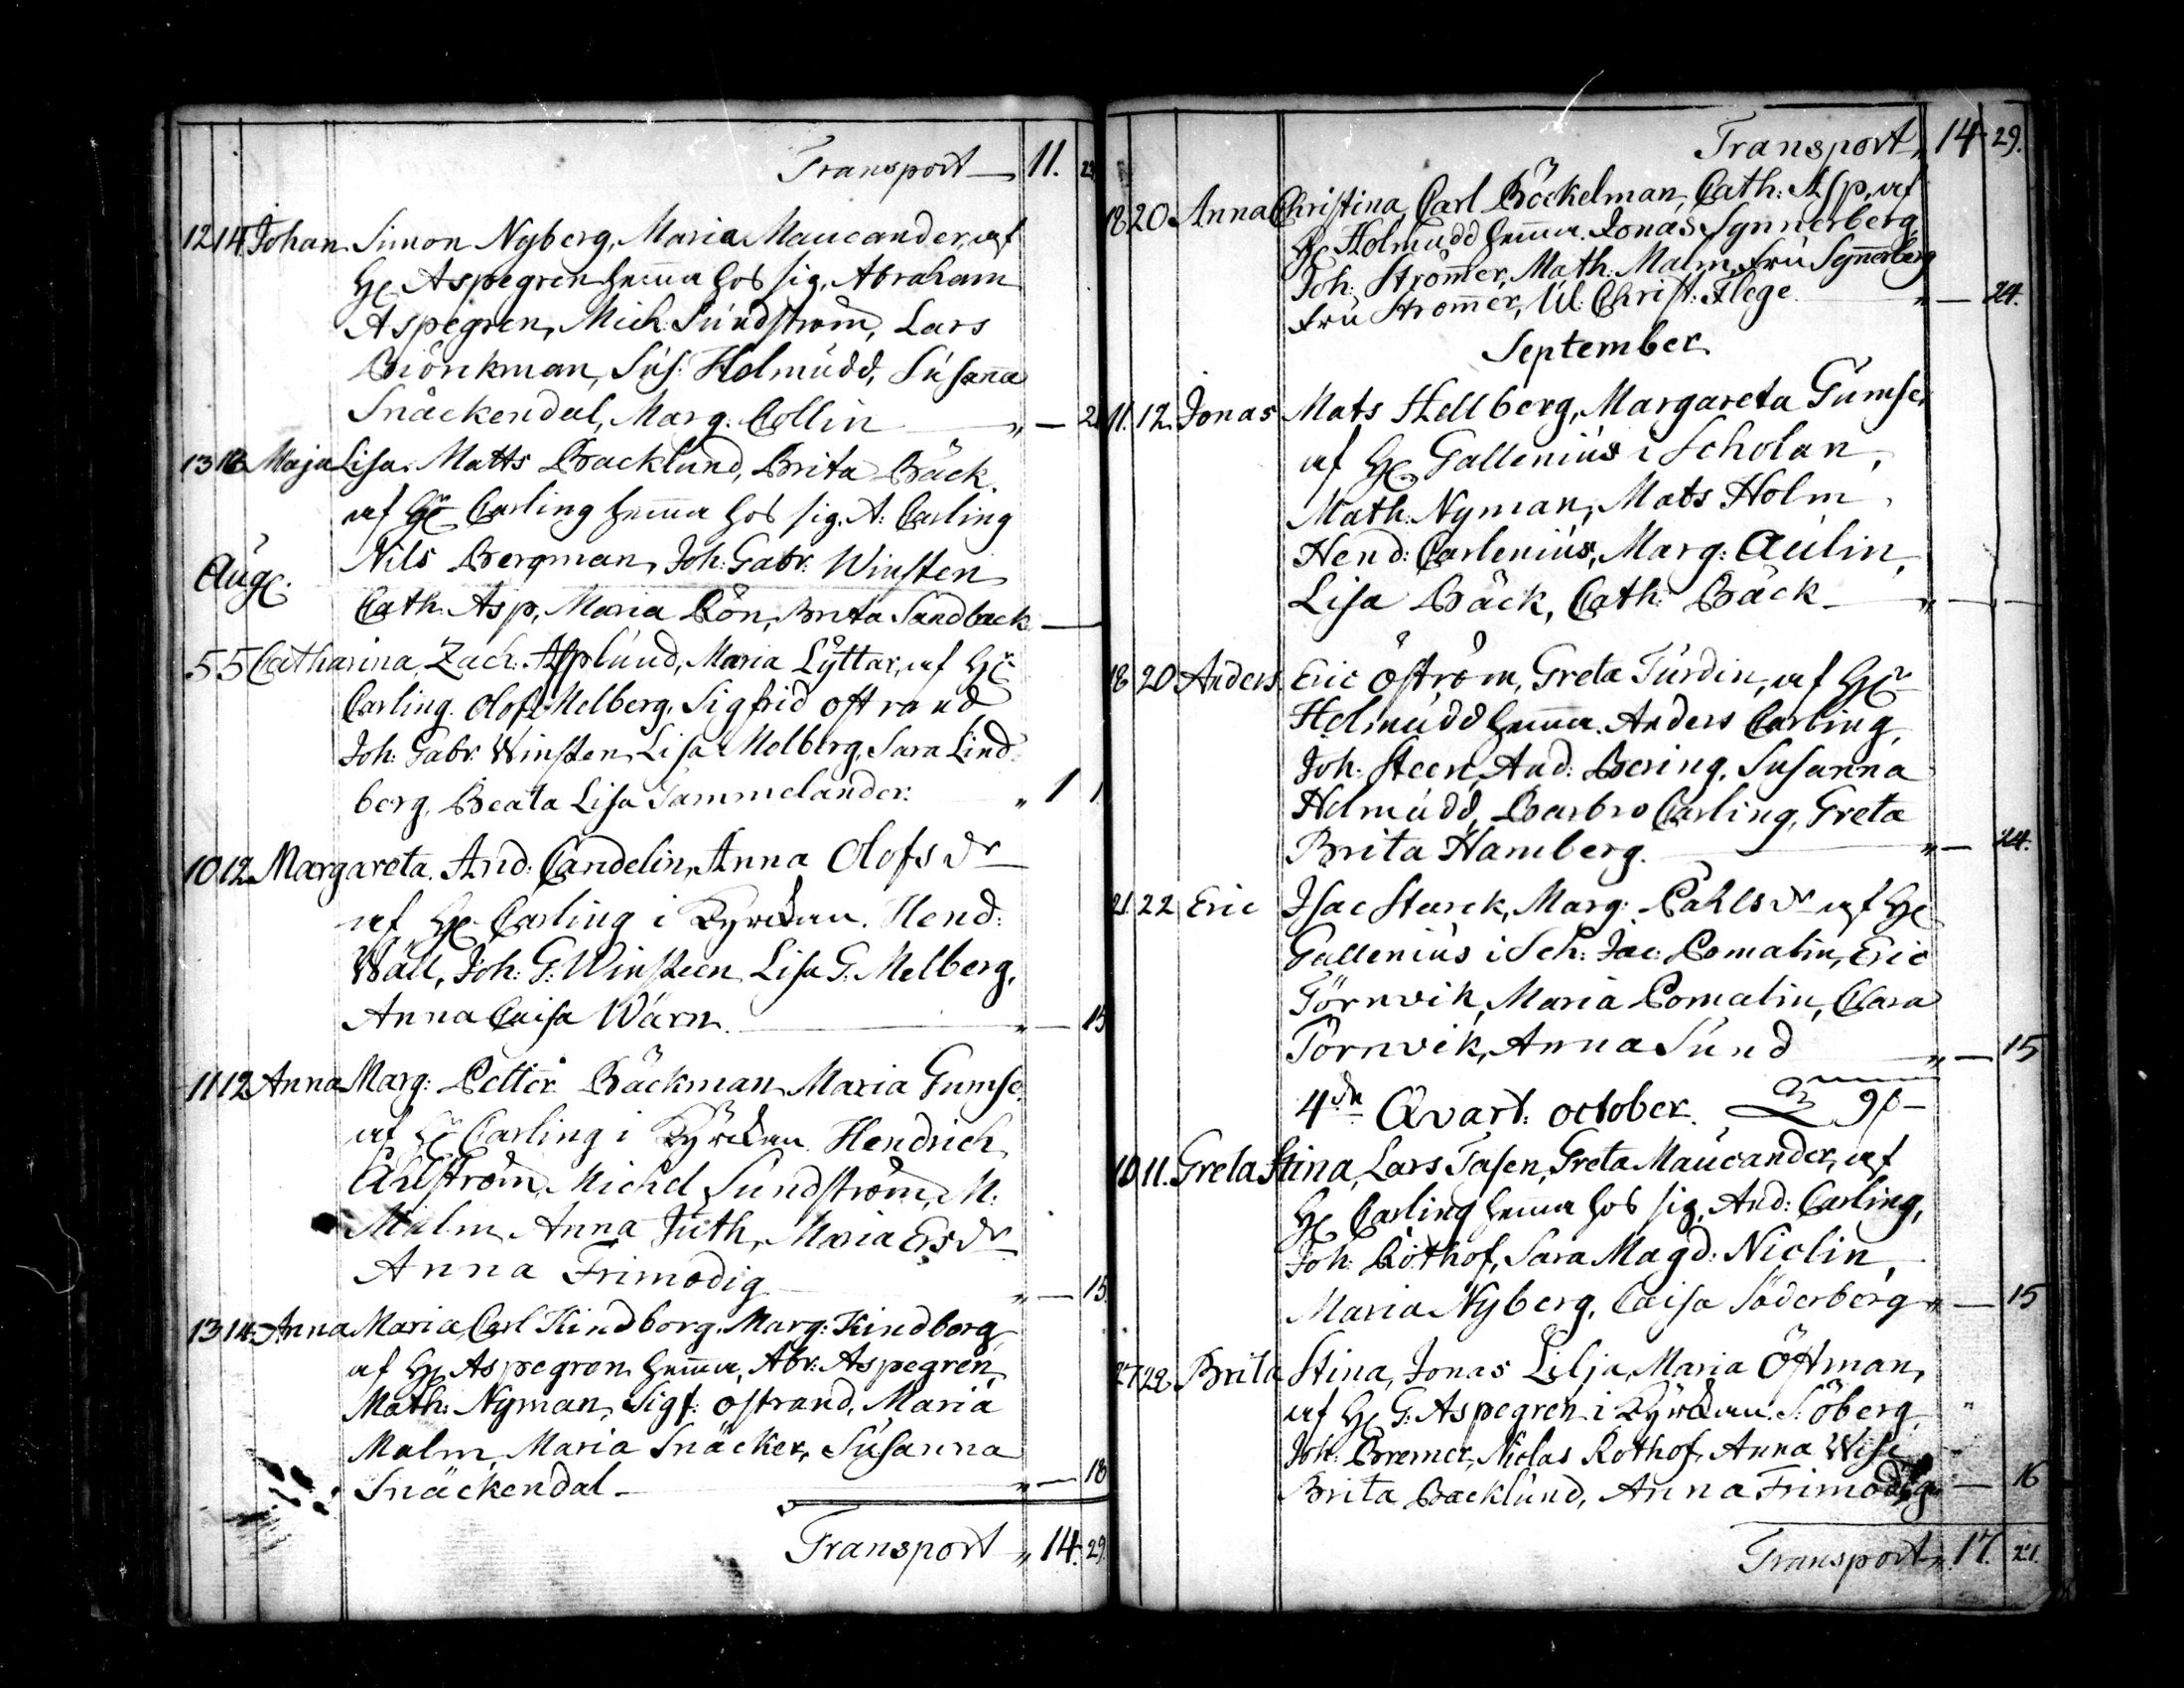 Transport 11. 23
12 14 Johan Simon Nyberg, Maria Maucander, af
H: Aspegren hemma hos sig, Abraham
Aspegren, Mich: Sundström, Lars
Biörckman, Sus: Holmudd, Susanna
Snäckendal, Marg. Collin „ — 2
13 16 Maja Lisa. Matts Backlund, Brita Bäck
af Hr Carling hemma hos sig. A: Carling
Nils Bergman, Joh: Gabr: Winsten
Aug:
Cath: Asp, Maria Rön, Brita Sandback —
5 5 Catharina, Zach: Asplund, Maria Lyttar, af Hr
Carling. Olof Melberg, Sigfrid Ostrand
Joh: Gabr: Winsten, Lisa Melberg, Sara Lind
berg, Beata Lisa Tammelander. „ 1 1
10 12 Margareta. And: Candelin, Anna Olofsdr
af H: Carling i Kyrckan. Hend:
Wäll, Joh: G: Winsteen Lisa G: Melberg,
Anna Caisa Wärn. „ — 15
11 12 Anna Marg: Petter Bäckman Maria Gumse,
af Hr Carling i Kyrckan Hendrich
Ahlström, Michel Sundström, M:
Malm, Anna Juth, Maria Ersdr
Anna Frimodig „ — 15.
13 14 Anna Maria, Carl Kindborg, Marg: Kindborg
af H: Aspegren hemma, Abr: Aspegren,
Math: Nyman, Sigf: Ostrand, Maria
Malm, Maria Snäcker, Susanna
Snäckendal — „ — 18
Transport „ 14. 29
Transport „ 14 29.
18 20 Anna Christina, Carl Böckelman, Cath: Asp, af
H: Holmudd hemma. Jonas Synnerberg,
Joh: Strömer, Math: Malm, Fru Synnerberg
Fru Stromer, Christ: Flege „ — 24.
September
11. 12. Jonas Mats Hellberg, Margareta Gumse,
af H: Gallenius i Scholan,
Math: Nyman, Mats Holm
Hend: Carlenius, Marg: Aulin,
Lisa Bäck, Cath: Bäck „ — —
18 20 Anders Eric Öström, Greta Turdin, af Hr
Holmudd hemma. Anders Carling,
Joh: Steen, And: Bering, Susanna
Holmudd, Barbro Carling, Greta
Brita Hamberg. „ — 24.
21. 22 Eric Isac Starck, Marg: Påhlsdr af H:
Gallenius i Sch: Jac: Pomalin, Eric
Törnvik, Maria Pomalin, Clara
Törnvik, Anna Sund „ — 15
4de Qvart: october.
10 11. Greta Stina, Lars Tasen, Greta Maucander, af
H: Carling hemma hos sig, And: Carling,
Joh: Rothof, Sara Magd: Niclin,
Maria Nyberg, Caisa Söderberg „ — 15
27 28 Brita Stina, Jonas Lilja, Maria Östman,
af H: G: Aspegren i Kyrckan. S: Öberg
Joh: Bremer, Niclas Rothof, Anna Wise
Brita Backlund, Anna Frimodig „ — 16
Transport „ 17. 21.